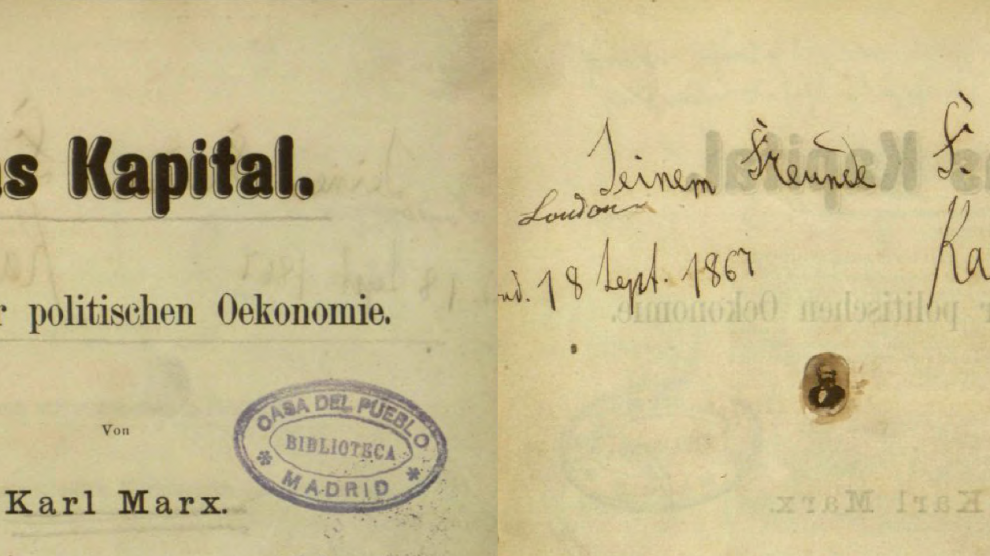 as Kapital.
r politischen Oekonomie.
Von
Karl Marx.
CASA DEL PUEBLO
BIBLIOTECA
* MADRID *
Seinem Freunde F.
London
nd. 18 Sept. 1867
Ka